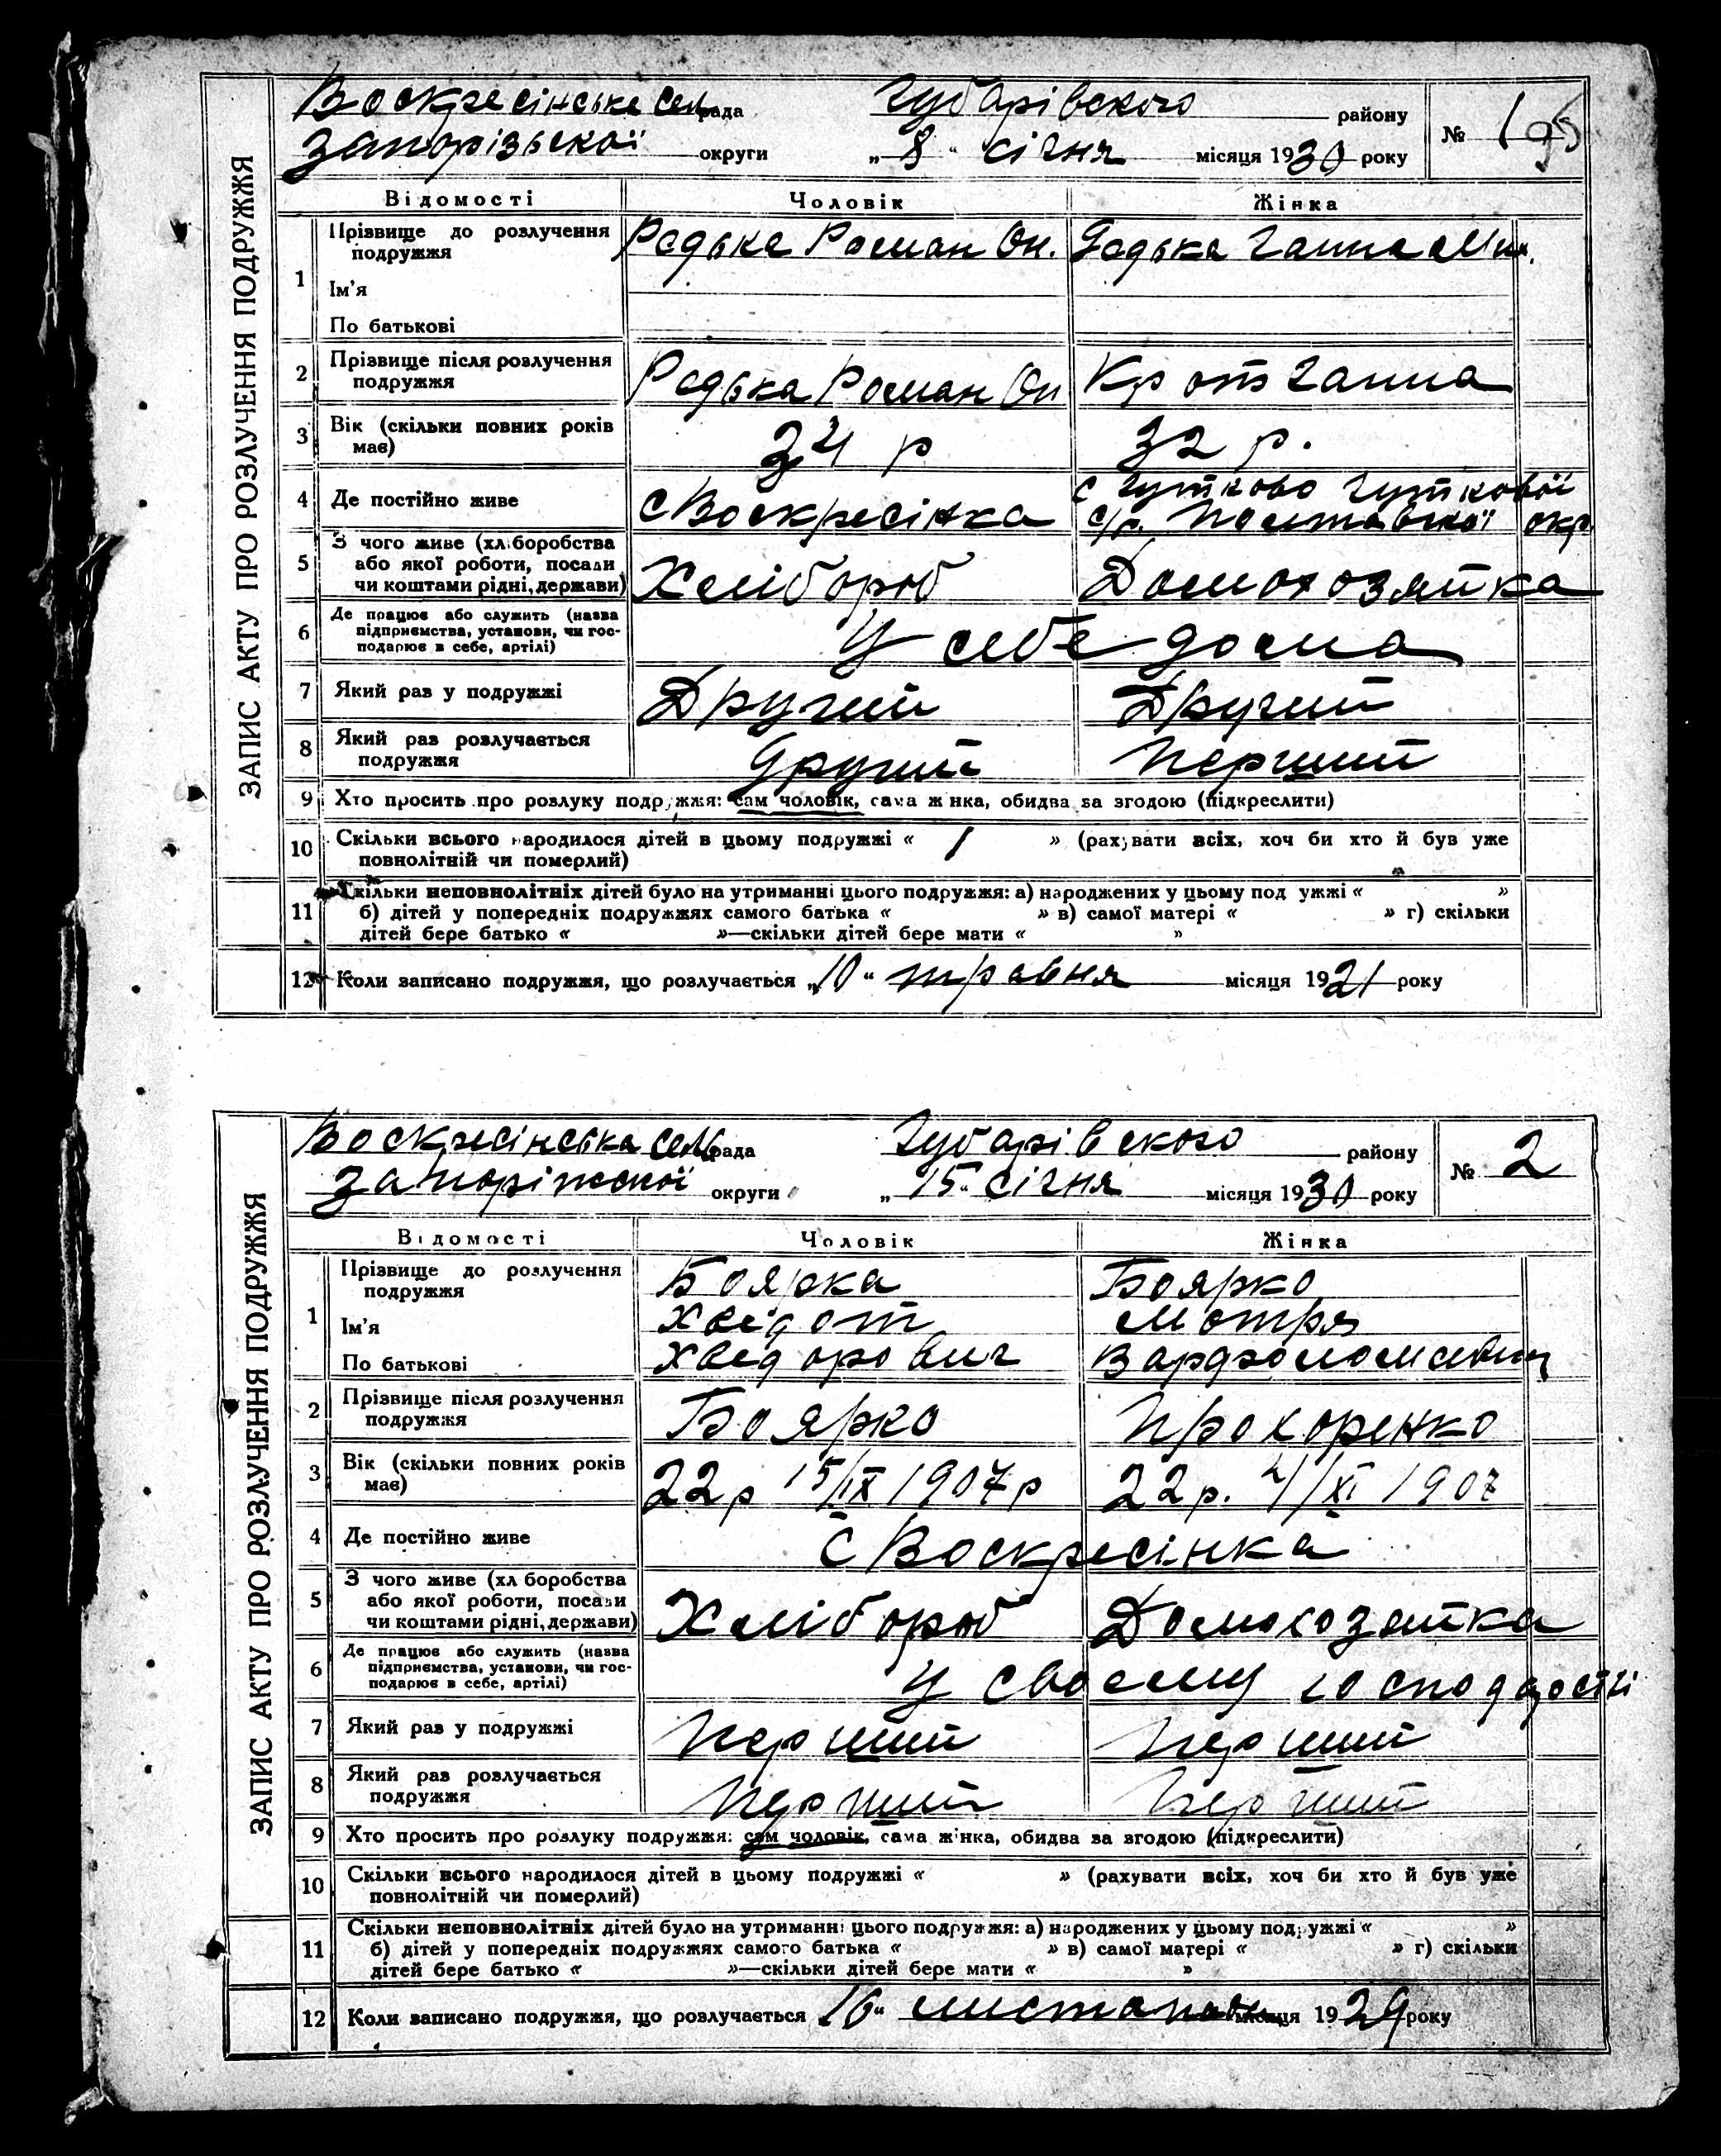 ЗАПИС АКТУ ПРО РОЗЛУЧЕННЯ ПОДРУЖЖЯ
Воскресінська сель рада Губарівского району № 1
Запорізької округи „ 8 “ січня місяця 1930 року
Відомості Чоловік Жінка
1 Прізвище до розлучення подружжя Редька Роман Он. Редька Ганна Мих.
Ім'я
По батькові
2 Прізвище після розлучення подружжя Редька Роман Он Крот Ганна
3 Вік (скільки повних років має) 34 р 32 р.
4 Де постійно живе с Воскресінка с Гутково Гуткової
с/р. Полтавської окр
5 З чого живе (хліборобства або якої роботи, посади чи коштами рідні, держави) Хлібороб Домохозяйка
6 Де працює або служить (назва підприємства, установи, чи господарює в себе, артілі) У себе дома
7 Який раз у подружжі Другий Другий
8 Який раз розлучається подружжя Другий Перший
9 Хто просить про розлуку подружжя: сам чоловік, сама жінка, обидва за згодою (підкреслити)
10 Скільки всього народилося дітей в цьому подружжі « 1 » (рахувати всіх, хоч би хто й був уже
повнолітній чи померлий)
11 Скільки неповнолітніх дітей було на утриманні цього подружжя: а) народжених у цьому подружжі « »
б) дітей у попередніх подружжях самого батька « » в) самої матері « » г) скільки
дітей бере батько « »—скільки дітей бере мати « »
12 Коли записано подружжя, що розлучається „10“ травня місяця 1921 року
ЗАПИС АКТУ ПРО РОЗЛУЧЕННЯ ПОДРУЖЖЯ
Воскресінська сель рада Губарівского району № 2
Запоріжської округи „ 15 “ січня місяця 1930 року
Відомості Чоловік Жінка
1 Прізвище до розлучення подружжя Боярка Боярко
Ім'я Хведот Мотря
По батькові Хведорович
2 Прізвище після розлучення подружжя Боярко Прохоренко
3 Вік (скільки повних років має) 22 р 15/IX 1907 р 22 р. 4/XI 1907
4 Де постійно живе С Воскресінка
5 З чого живе (хліборобства або якої роботи, посади чи коштами рідні, держави) Хлібороб Домохозяйка
6 Де працює або служить (назва підприємства, установи, чи господарює в себе, артілі) У своєму
7 Який раз у подружжі Перший Перший
8 Який раз розлучається подружжя Перший Перший
9 Хто просить про розлуку подружжя: сам чоловік, сама жінка, обидва за згодою (підкреслити)
10 Скільки всього народилося дітей в цьому подружжі « » (рахувати всіх, хоч би хто й був уже
повнолітній чи померлий)
11 Скільки неповнолітніх дітей було на утриманні цього подружжя: а) народжених у цьому подружжі « »
б) дітей у попередніх подружжях самого батька « » в) самої матері « » г) скільки
дітей бере батько « »—скільки дітей бере мати « »
12 Коли записано подружжя, що розлучається 16“ листопада місяця 1929 року